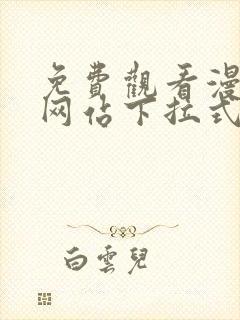 免費觀看漫
网佔下拉式
白雲兒